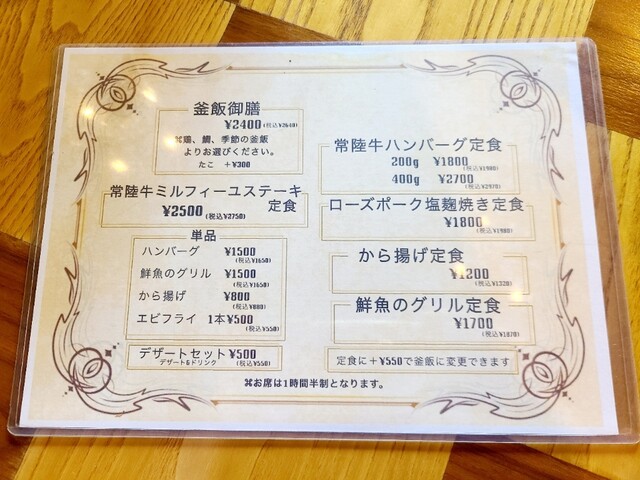 釜飯御膳
¥2400(税込¥2640)
⌘鶏、鯛、季節の釜飯
よりお選びください。
たこ ＋¥300
常陸牛ミルフィーユステーキ
定食
¥2500(税込¥2750)
単品
ハンバーグ ¥1500
(税込¥1650)
鮮魚のグリル ¥1500
(税込¥1650)
から揚げ ¥800
(税込¥880)
エビフライ 1本¥500
(税込¥550)
デザートセット¥500
デザート&ドリンク (税込¥550)
常陸牛ハンバーグ定食
200g ¥1800
(税込¥1980)
400g ¥2700
(税込¥2970)
ローズポーク塩麹焼き定食
¥1800
(税込¥1980)
から揚げ定食
¥1200
(税込¥1320)
鮮魚のグリル定食
¥1700
(税込¥1870)
定食に＋¥550で釜飯に変更できます
⌘お席は1時間半制となります。